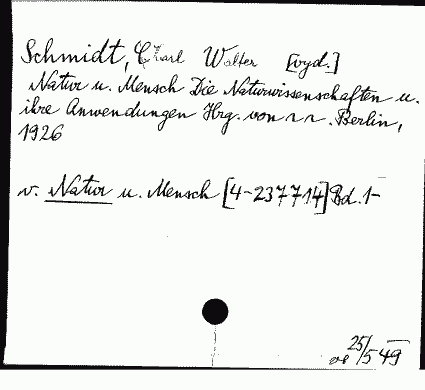 Schmidt, Charl Walter [vyd.]
Natur u. Mensch Die Naturwissenschaften u.
ihre Anwendungen Hrg. von ~ ~. Berlin,
1926
v. Natur u. Mensch [4-237714] Bd. 1-
25/549